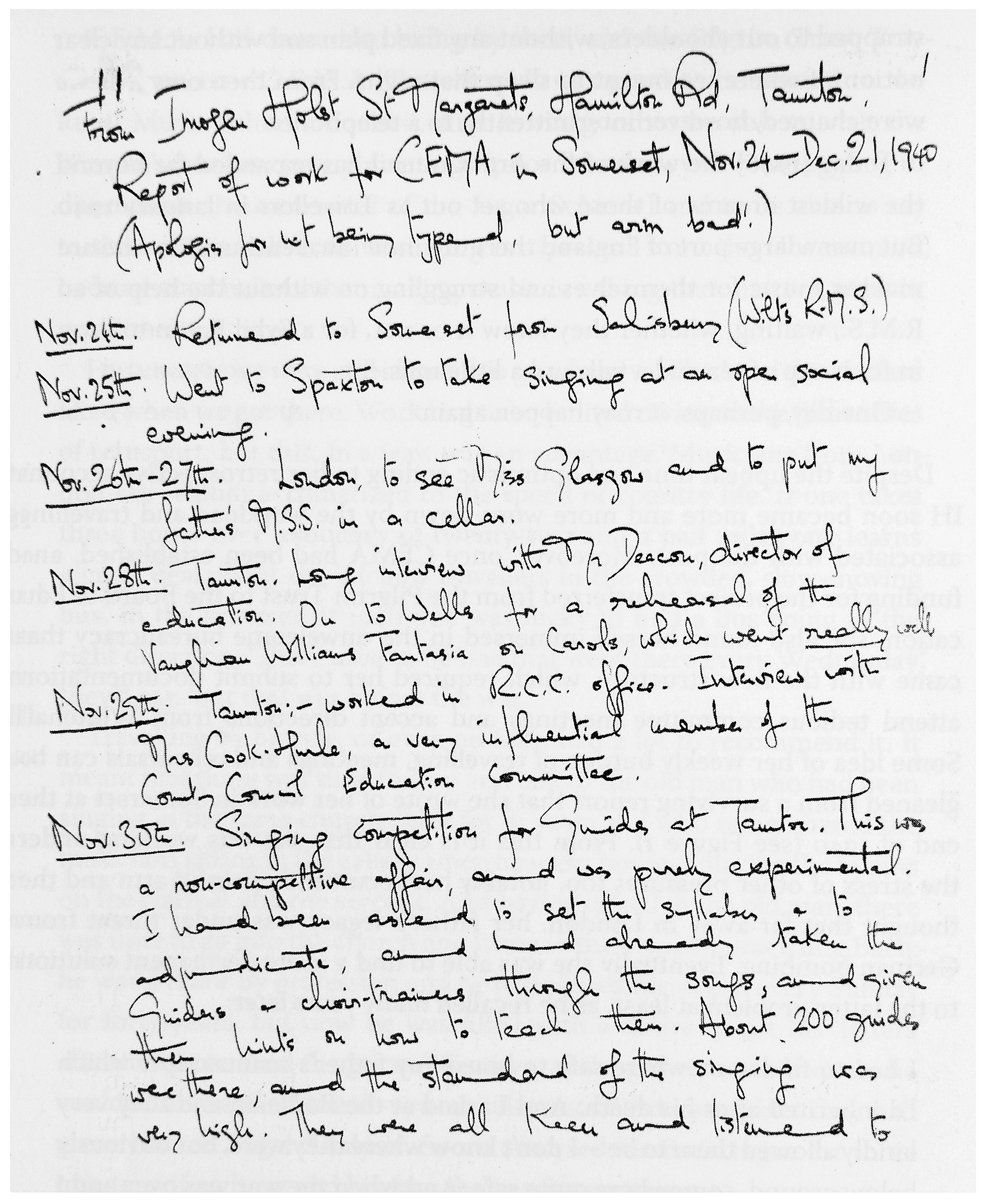 From Imogen Holst St Margarets Hamilton Rd, Taunton.
Report of work for CEMA in Somerset, Nov. 24 – Dec. 21, 1940
(Apologies for not being typed, but arm bad!)
Nov. 24th. Returned to Somerset from Salisbury (Wilts R.M.S.)
Nov. 25th Went to Spaxton to take singing at an open social
evening.
Nov. 26th – 27th London, to see Miss Glasgow and to put my
father's M.S.S. in a cellar.
Nov. 28th Taunton. Long interview with Mr Deacon, director of
education. On to Wells for a rehearsal of the
Vaughan Williams Fantasia on Carols, which went really well
Nov. 29th. Taunton:- worked in R.C.C. office. Interview with
Mrs Cook-Hurle, a very influential member of the
County Council Education Committee.
Nov. 30th. Singing Competition for Guides at Taunton. This was
a non-competitive affair, and was purely experimental.
I had been asked to set the syllabus & to
adjudicate, and had already taken the
Guiders & choir-trainers through the songs, and given
them hints on how to teach them. About 200 guides
were there, and the standard of the singing was
very high. They were all keen and listened to